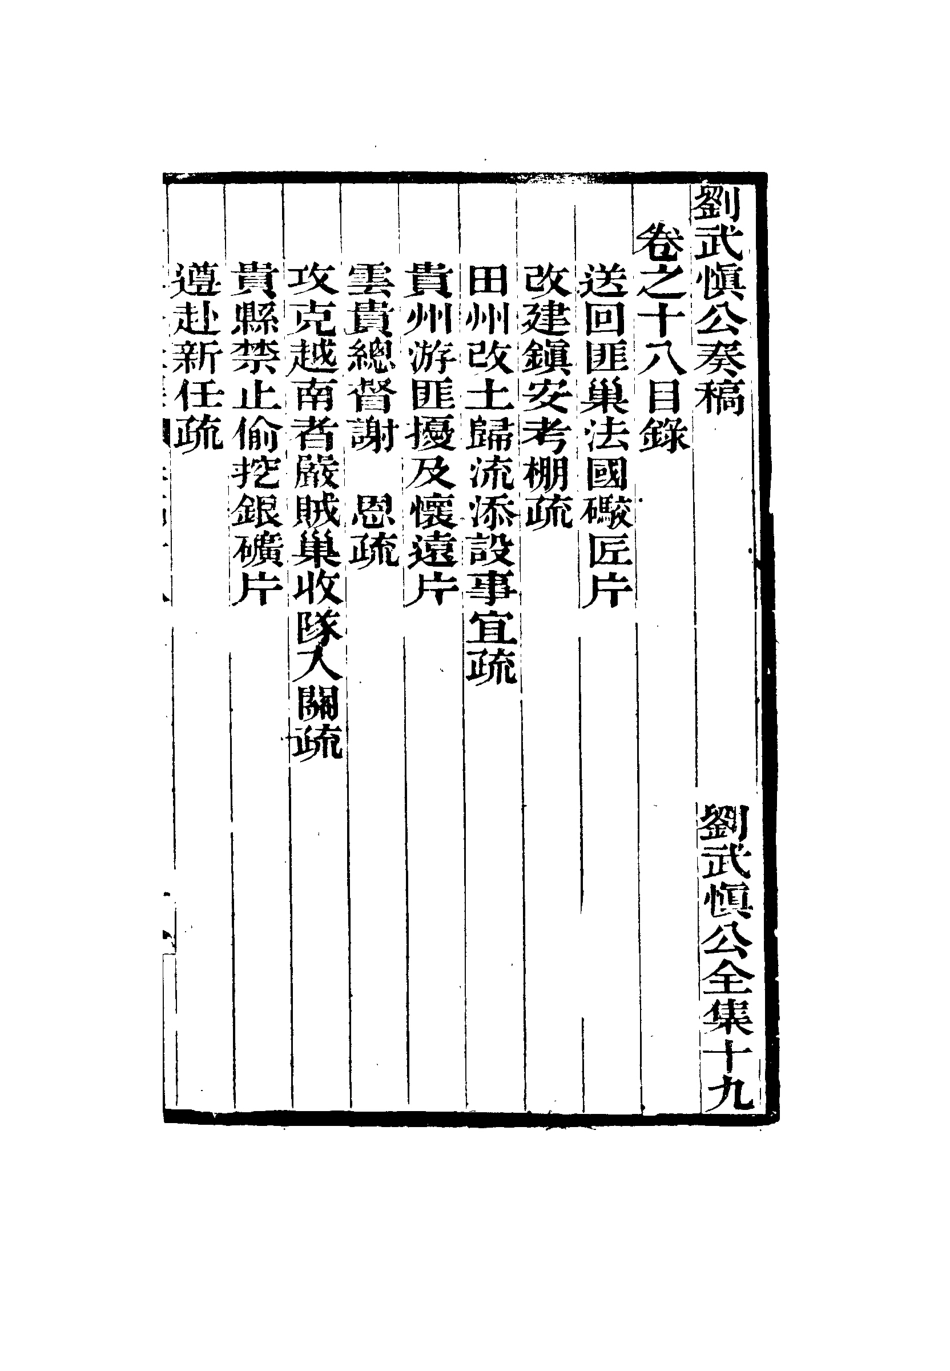 劉武慎公奏稿　劉武慎公全集十九
卷之十八目錄
送回匪巢法國礮匠片
改建鎮安考棚疏
田州改土歸流添設事宜疏
貴州游匪擾及懷遠片
雲貴總督謝　恩疏
攻克越南者嚴賊巢收隊入關疏
貴縣禁止偷挖銀礦片
遵赴新任疏